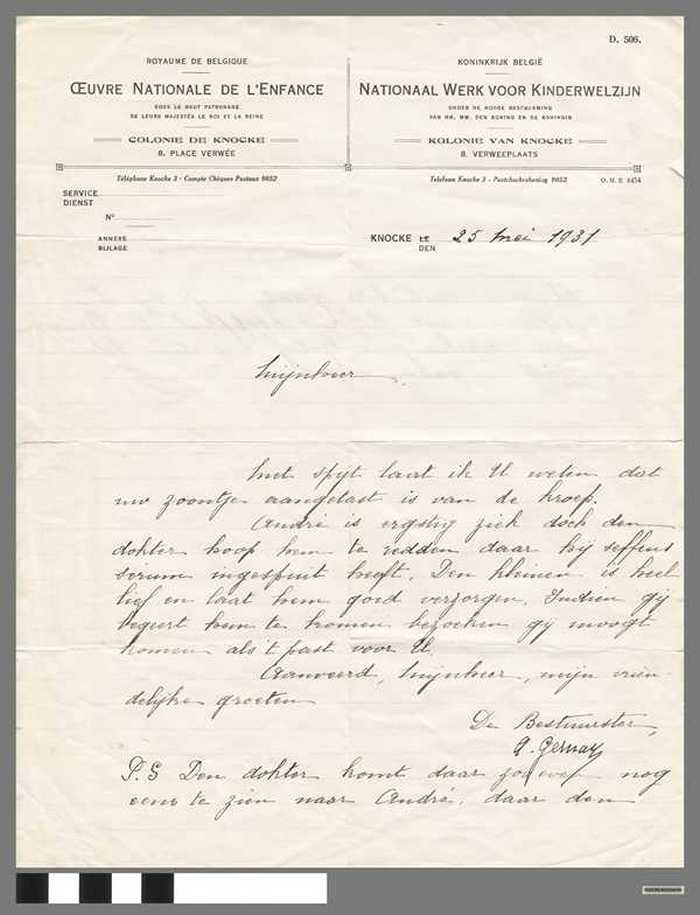 D. 506.
ROYAUME DE BELGIQUE
ŒUVRE NATIONALE DE L'ENFANCE
SOUS LE HAUT PATRONAGE
DE LEURS MAJESTÉS LE ROI ET LA REINE
COLONIE DE KNOCKE
8, PLACE VERWÉE
Téléphone Knocke 3 - Compte Chèques Postaux 9852
KONINKRIJK BELGIË
NATIONAAL WERK VOOR KINDERWELZIJN
ONDER DE HOOGE BESCHERMING
VAN HH. MM. DEN KONING EN DE KONINGIN
KOLONIE VAN KNOCKE
8, VERWEEPLAATS
Telefoon Knocke 3 - Postcheckrekening 9852
O. N. E. 6454
SERVICE
DIENST
N°
ANNEXE
BIJLAGE
KNOCKE LE 25 Mei 1931
DEN
Mijnheer
Met spijt laat ik U weten dat
uw zoontje aangetast is van de kroep.
André is ergstig ziek doch den
dokter hoop hem te redden daar hij seffens
serum ingespuit heeft. Den kleinen is heel
lief en laat hem goed verzorgen. Indien gij
begeert hem te komen bezoeken gij moogt
komen als 't past voor U.
Aanveerd, Mijnheer, mijn vrien-
delijke groeten
De Bestuurster,
P.S Den dokter komt daar nog
eens te zien naar André, daar den